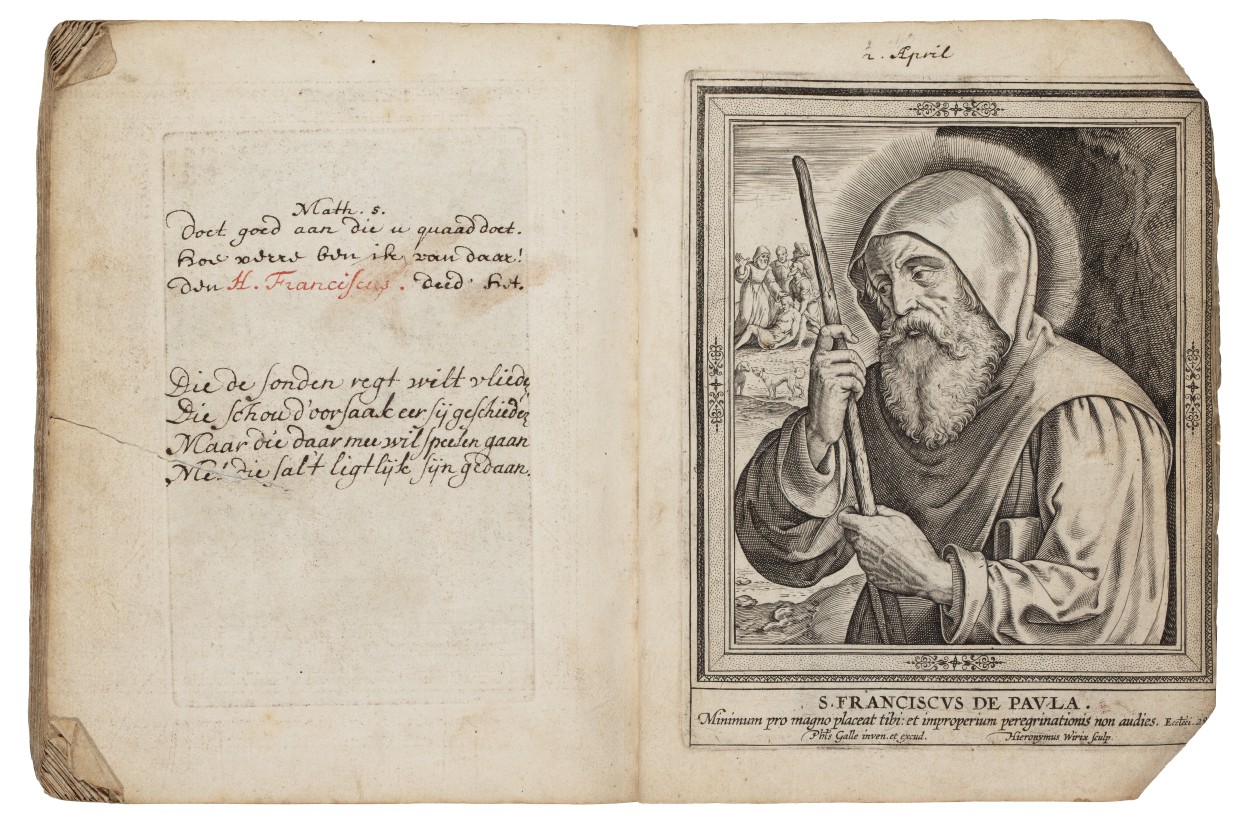 Math. 5.
Doet goed aan die u quaad doet.
hoe verre ben ik van daar!
den H. Franciscus. deed het.
Die de sonden regt wilt vlieden
Die schou d'oorsaak eer sij geschieden
Maar die daar mee wil speelen gaan
Me! die salt ligtlijk sijn gedaan.
2. April
S. FRANCISCVS DE PAVLA.
Minimum pro magno placeat tibi: et improperium peregrinationis non audies. Eccleci. 29
Phls Galle inven. et excud. Hieronymus Wirix sculp.